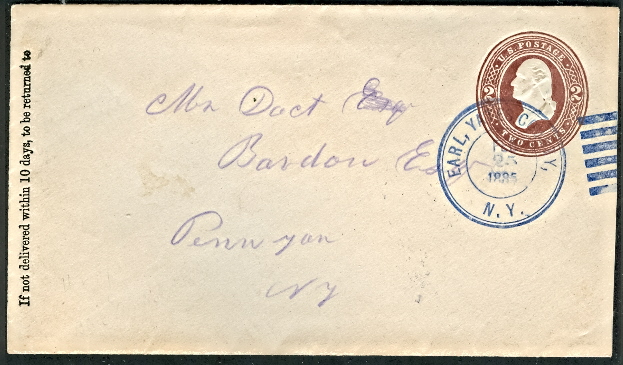 If not delivered within 10 days, to be returned to
U.S. POSTAGE
TWO CENTS
2 2
EARL, YA C Y,
25
1885
N.Y.
Mr Doct Esq
Bardon Esq
Penn yan
NY